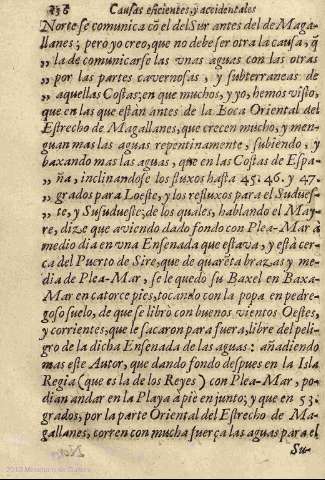 236 Causas eficientes, y accidentales
Norte se comunica cõ el del Sur antes del de Maga-
llanes; pero yo creo, que no debe ser otra la causa, q̃
„ la de comunicarse las vnas aguas con las otras
„ por las partes cavernosas, y subterraneas de
„ aquellas Costas; en que muchos, y yo, hemos visio,
que en las que están antes de la Boca Oriental del
Estrecho de Magallanes, que crecen mucho, y men-
guan mas las aguas repentinamente, subiendo, y
baxando mas las aguas, que en las Costas de Espa-
„ ña, inclinandose los fluxos hasta 45. 46. y 47.
„ grados para Loeste, y los refluxos para el Sudues-
„ te, y Susudueste; de los quales, hablando el May-
re, dize que aviendo dado fondo con Plea-Mar à
medio dia en vna Ensenada que estava, y està cer-
ca del Puerto de Sire, que de quarēta brazas y me-
dia de Plea-Mar, se le quedo su Baxel en Baxa-
Mar en catorce pies, tocando con la popa en pedre-
goso suelo, de que se librò con buenos vientos Oestes,
y corrientes, que le sacaron para fuera, libre del peli-
gro de la dicha Ensenada de las aguas: añadiendo
mas este Autor, que dando fondo despues en la Isla
Regia (que es la de los Reyes) con Plea-Mar, po-
dian andar en la Playa à pie enjunto; y que en 53.
grados, por la parte Oriental del Estrecho de Ma-
gallanes, corren con mucha fuerça las aguas para el
Su-